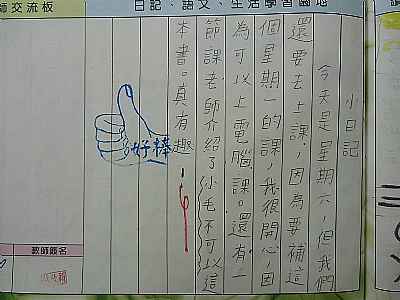 師交流板
日記、語文、生活學習園地
小日記
今天是星期六,但我們
還要去上課,因為要補這
個星期一的課,我很開心因
為可以上電腦課。還有一
節課老師介紹了小毛不可以這
本書。真有趣。
好棒
教師簽名